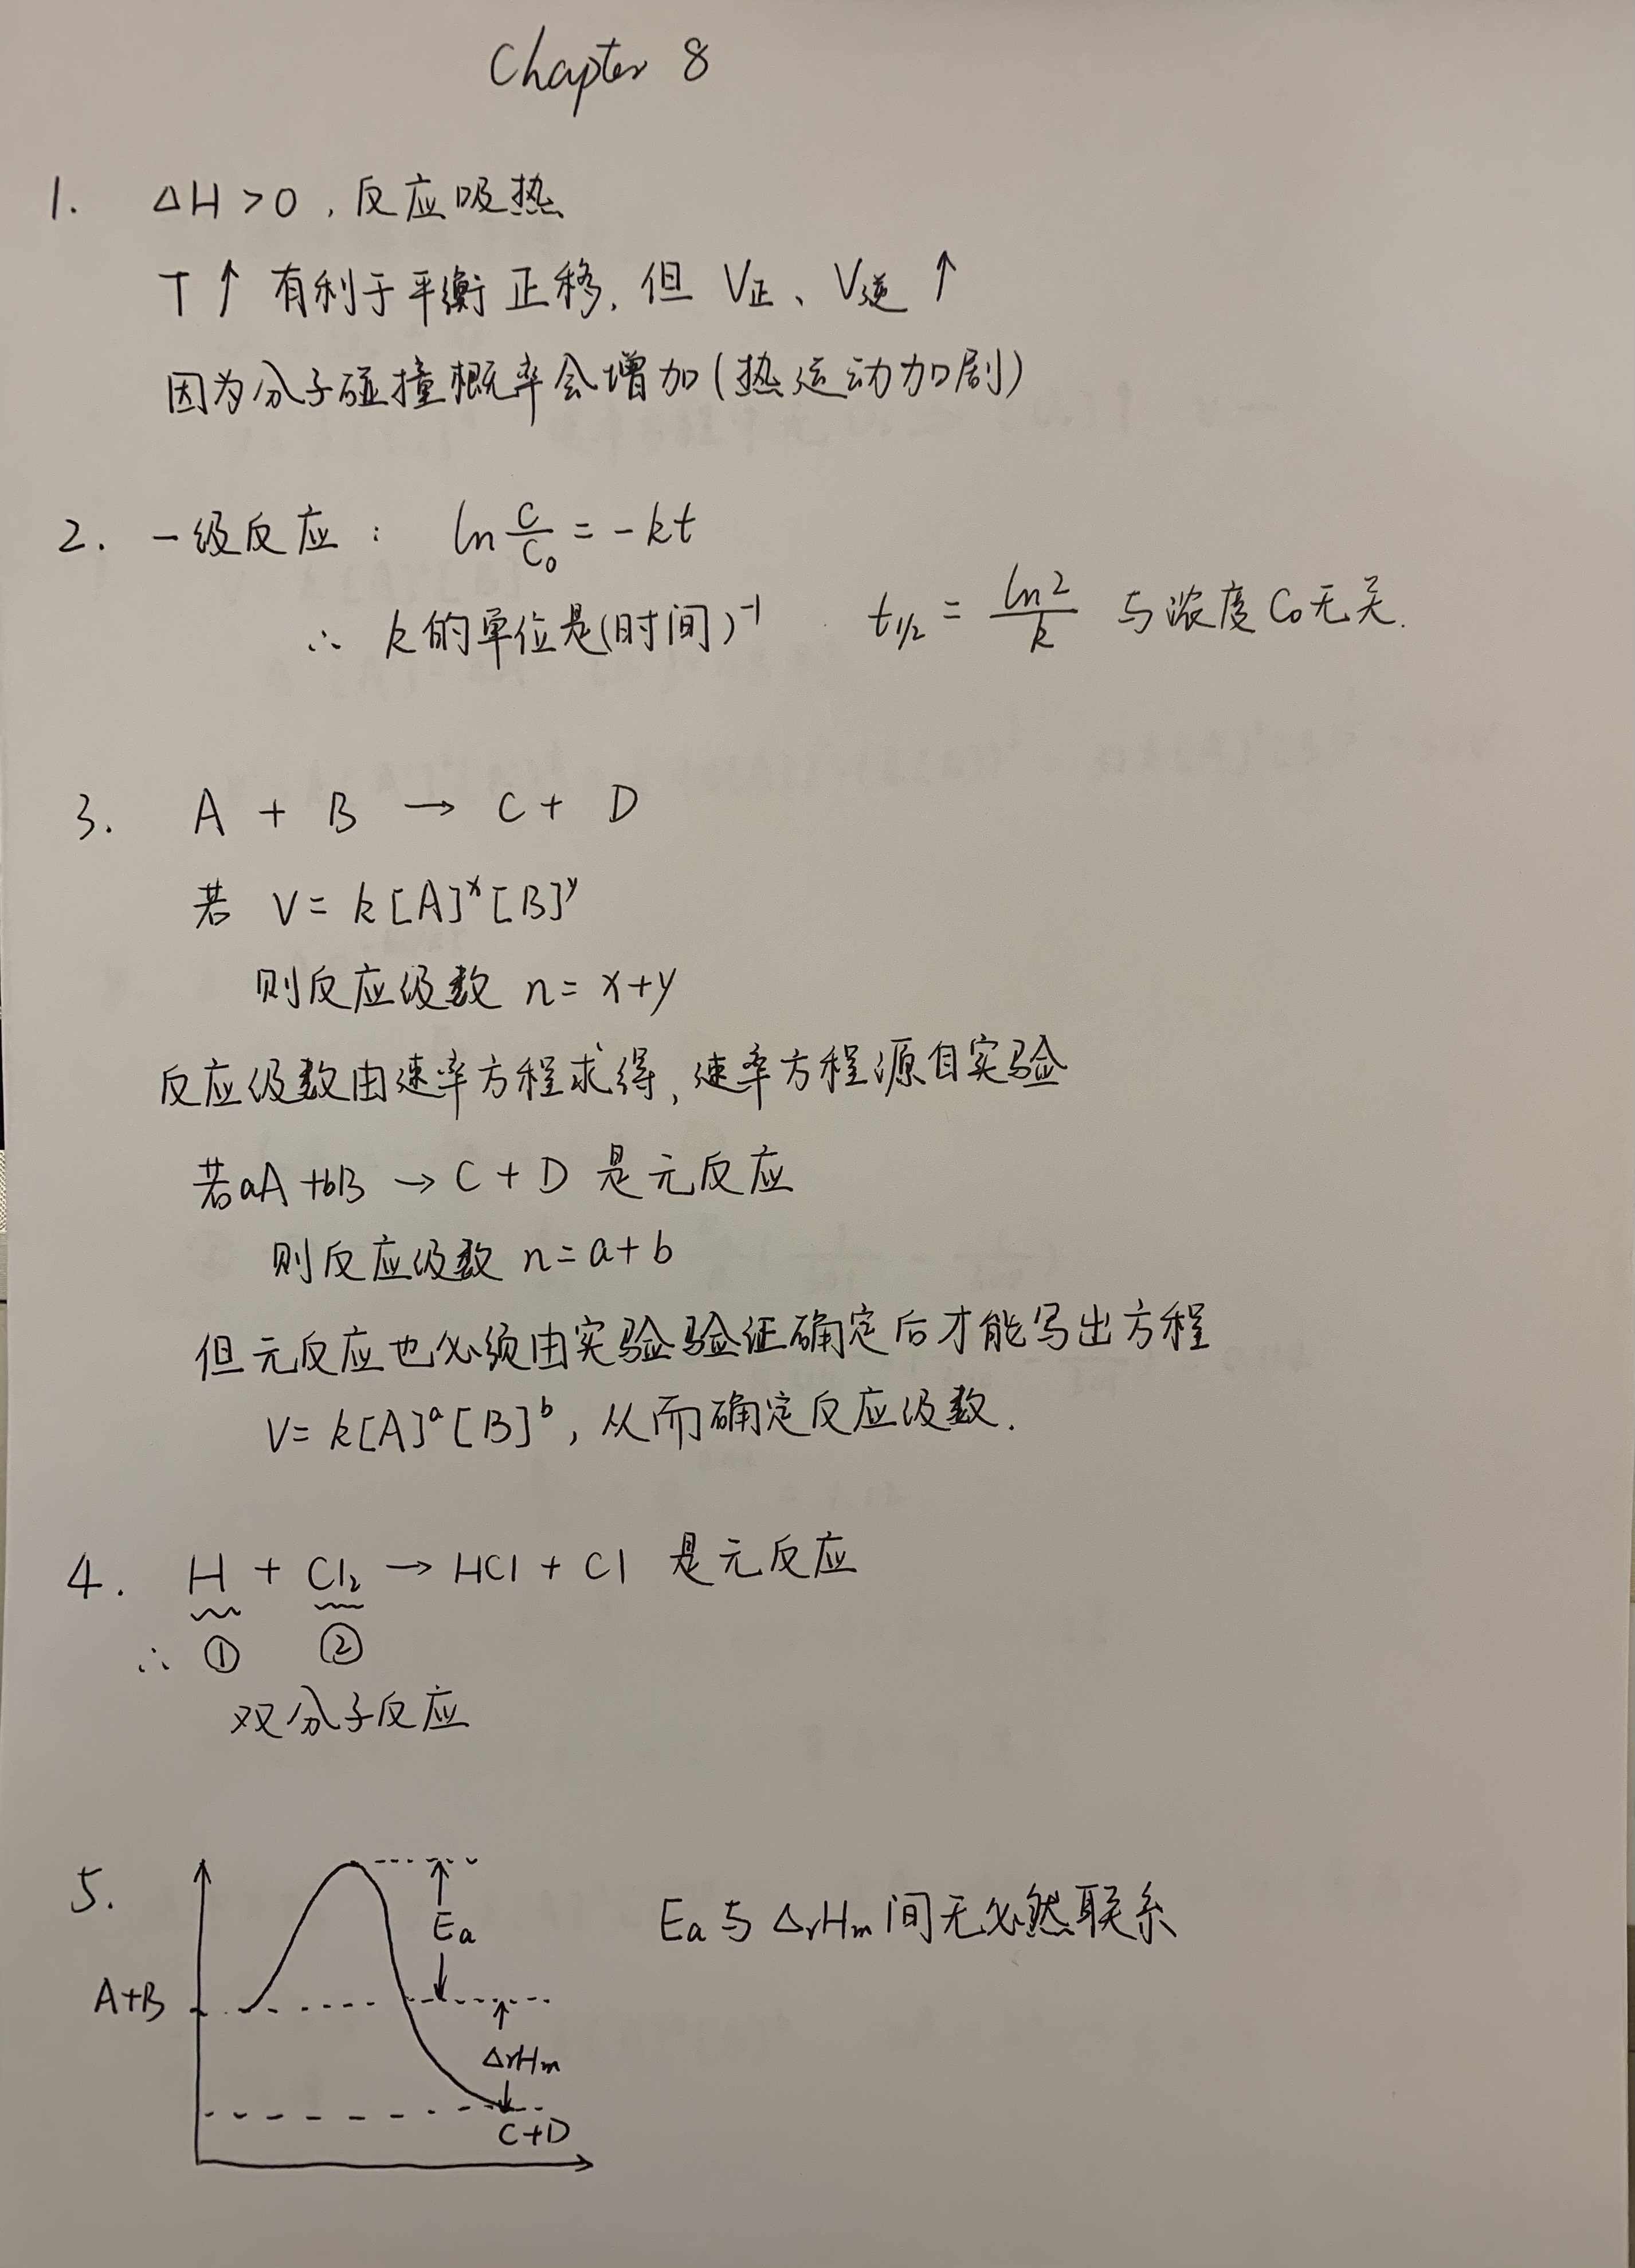 Chapter 8
1. ΔH>0,反应吸热
T↑有利于平衡正移,但 V正、V逆↑
因为分子碰撞概率会增加(热运动加剧)
2. 一级反应: ln c/c₀ = -kt
∴ k的单位是(时间)⁻¹ t1/2 = ln2/k 与浓度C₀无关.
3. A + B → C + D
若 V= k[A]ˣ[B]ʸ
则反应级数 n= x+y
反应级数由速率方程求得,速率方程源自实验
若aA+bB → C+D 是元反应
则反应级数 n=a+b
但元反应也必须由实验验证确定后才能写出方程
V= k[A]ᵃ[B]ᵇ,从而确定反应级数.
4. H + Cl₂ → HCl + Cl 是元反应
∴ ① ②
双分子反应
5. Ea与ΔrHm间无必然联系
Ea
A+B
ΔrHm
C+D